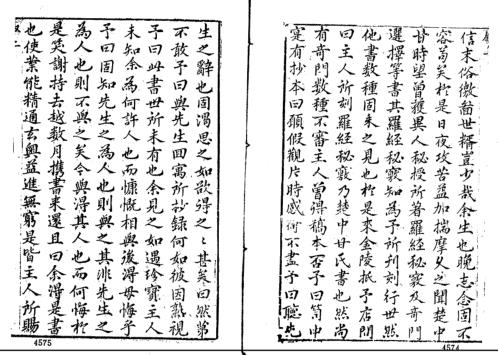 信末俗徼世稱豈少哉余生也晚志念固不
容苟矣於是日夜攻苦益加揣摩久之聞楚中
甘時望曾獲異人秘授所著羅經秘竅及奇門
選擇等書其羅經秘竅知為予所刊刻行世然
他書數種固未之見也於是來金陵抵予店問
曰主人所刻羅經秘竅乃楚中甘氏書也然尚
有奇門數種不審主人曾得稿本否予曰笥中
寔有抄本曰願假觀片時感何不盡予曰聽
4574
生之辭也固渴思之如欲得之〻甚矣曰然第
不敢予曰與先生回寓所抄錄何如彼因熟視
予曰此書世所未有也余見之如遇珍寶主人
未知余為何許人也而慷慨相與後得毋悔乎
予曰固知先生之為人也則與之其非先生之
為人也則不與之矣今與得其人也而何悔於
是笑謝持去越數月攜書來還且曰余得是書
也使業能精通玄奧益進無窮是皆主人所賜
4575